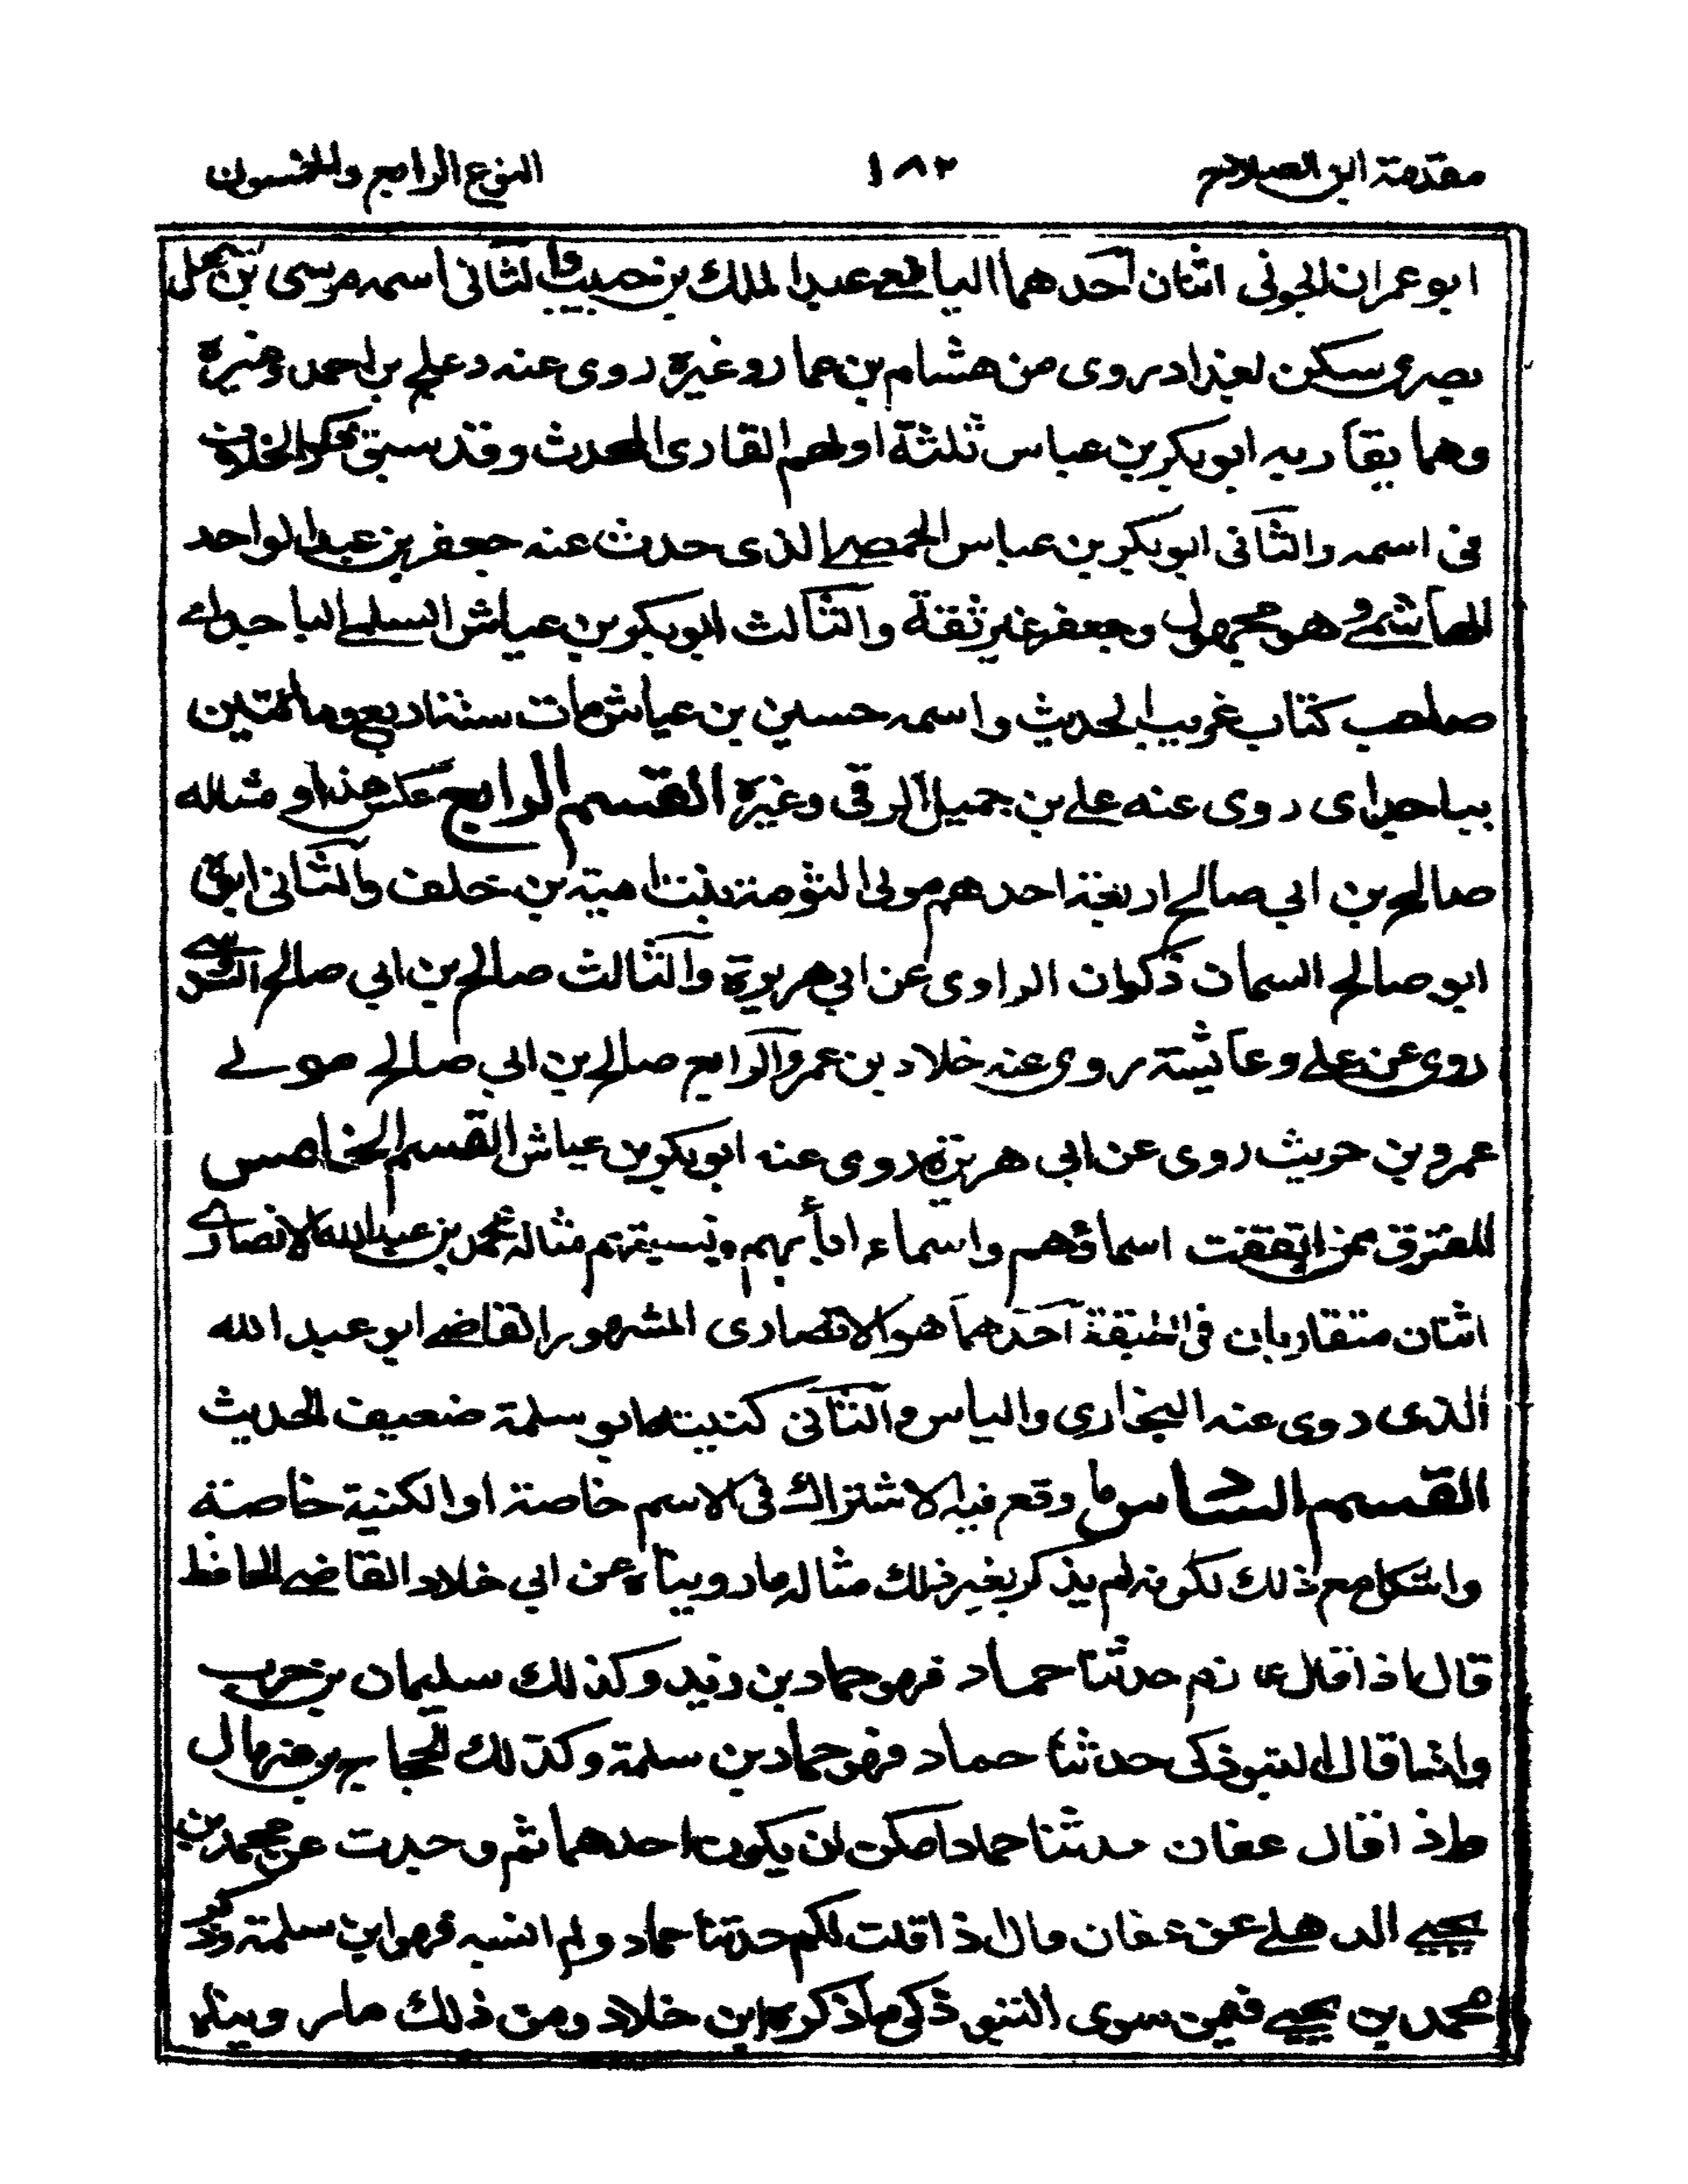 مقدمة ابن الصلاح ١٨٢ النوع الرابع والخمسون
ابو عمران الجونی اثنان احدهما التابعی عبد الملک بن حبیب والثانی اسمه موسی بن سهل
بصری سکن بغداد روی من هشام بن عمار وغیره روی عنه دعلج بن احمد وغیره
وهما یقاربه ابو بکر بن عیاس ثلثة اولهم القاری المحدث وقد سبق ذکر الخلاف
فی اسمه والثانی ابو بکر بن عیاس الحمصی الذی حدث عنه جعفر بن عبد الواحد
الهاشمی وهو مجهول وجعفر غیر ثقة والثالث ابو بکر بن عیاش السلمی الباجدائی
صاحب کتاب غریب الحدیث واسمه حسین بن عیاش مات سنة اربع ومائتین
بباجدای روی عنه علی بن جمیل الرقی وغیره القسم الرابع عکس هذا ومثاله
صالح بن ابی صالح اربعة احدهم مولی التوٴمة بنت امیة بن خلف والثانی ابوه
ابو صالح السمان ذکوان الراوی عن ابی هریرة والثالث صالح بن ابی صالح السدوسی
روی عن علی وعائشة روی عنه خلاد بن عمر والرابع صالح بن ابی صالح مولے
عمرو بن حریث روی عن ابی هریرة روی عنه ابو بکر بن عیاش القسم الخامس
المفترق ممن اتفقت اسماؤهم واسماء اٰبائهم ونسبتهم مثاله محمد بن عبد الله الانصاری
اثنان متقاربان فی الطبقة احدهما هو الانصاری المشهور القاضی ابو عبد الله
الذی روی عنه البخاری والناس والثانی کنیته ابو سلمة ضعیف الحدیث
القسم السادس ما وقع فیه الاشتراک فی الاسم خاصة او الکنیة خاصة
واشکل مع ذلک لکونه لم یذکر بغیر ذلک مثاله ما رویناه عن ابی خلاد القاضی الحافظ
قال اذا قال عارم حدثنا حماد فهو حماد بن زید وکذلک سلیمان بن حرب
واذا قال التبوذکی حدثنا حماد فهو حماد بن سلمة وکذلک الحجاج بن منهال
واذا قال عفان حدثنا حماد امکن ان یکون احدهما ثم وجدت عن محمد بن
یحیی الذهلی عن عفان قال اذا قلت لکم حدثنا حماد ولم انسبه فهو ابن سلمة وذکر
محمد بن یحیی فیمن سوی التبوذکی ما ذکره ابن خلاد ومن ذلک ما رویناه